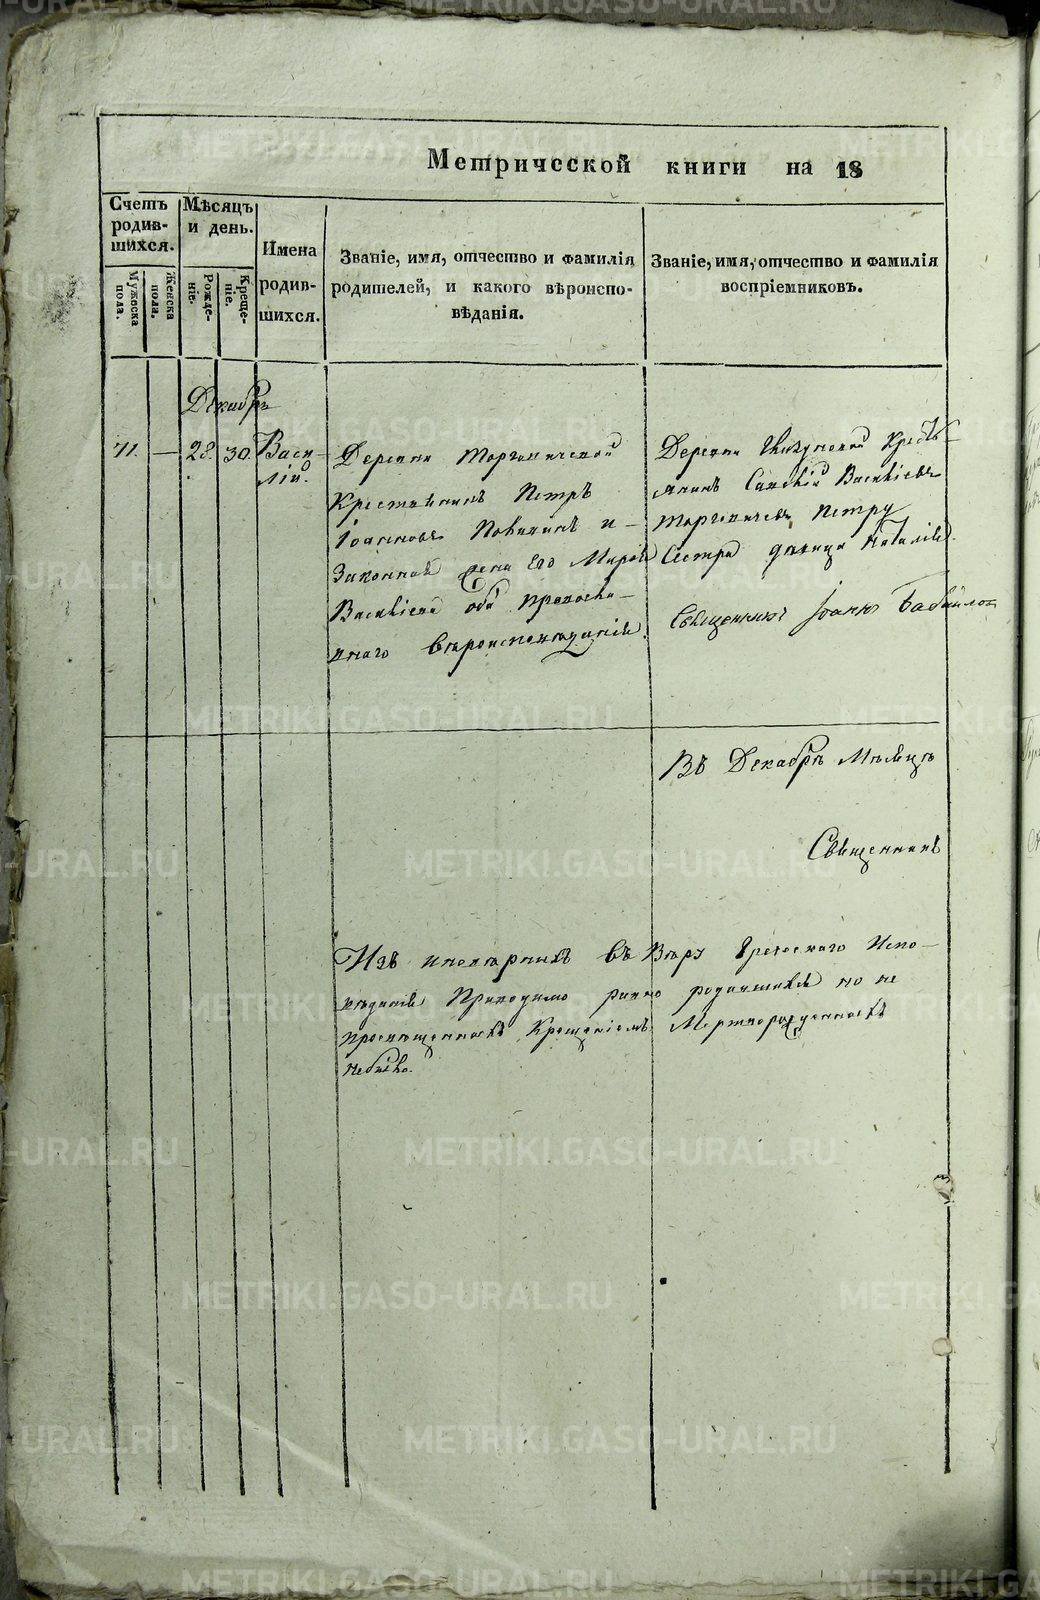 Метрической книги на 18
Счетъ родившихся.
Мужеска пола.
Женска пола.
Мѣсяцъ и день.
Рожденіе.
Крещеніе.
Имена родившихся.
Званіе, имя, отчество и фамилія
родителей, и какого вѣроиспо-
вѣданія.
Званіе, имя, отчество и фамилія
воспріемниковъ.
Декабрь
71. — 28. 30. Васи-
лій.
Деревни
Крестьянинъ Петръ
Іоанновъ и
Законная жена его
Васильева оба православ-
наго вѣроисповѣданія.
Деревни Кресть-
янинъ Василіевъ
Петру
Сестра дѣвица Наталія.
Священникъ Іоаннъ
Въ Декабрѣ Мѣсяцѣ
Священникъ
Изъ иновѣрныхъ въ Вѣру Греческаго Испо-
вѣданія Приходимо равно родившихся но не
просвѣщенныхъ Крещеніемъ Мертворожденныхъ
небыло.
METRIKI.GASO-URAL.RU